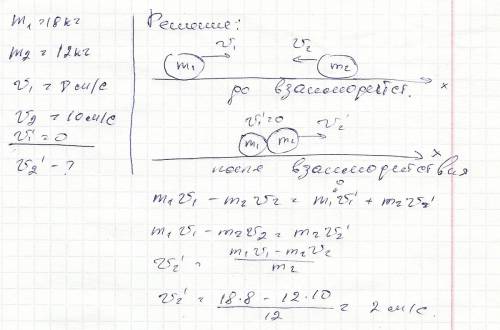 m₁ = 18 кг
m₂ = 12 кг
v₁ = 8 м/с
v₂ = 10 м/с
v₁' = 0
v₂' - ?
Решение:
v₁ v₂
m₁ m₂ x
до взаимодейст.
v₁'=0 v₂'
m₁ m₂ x
после взаимодействия
0
m₁v₁ - m₂v₂ = m₁v₁' + m₂v₂'
m₁v₁ - m₂v₂ = m₂v₂'
v₂' = m₁v₁ - m₂v₂ / m₂
v₂' = 18·8 - 12·10 / 12 = 2 м/с.